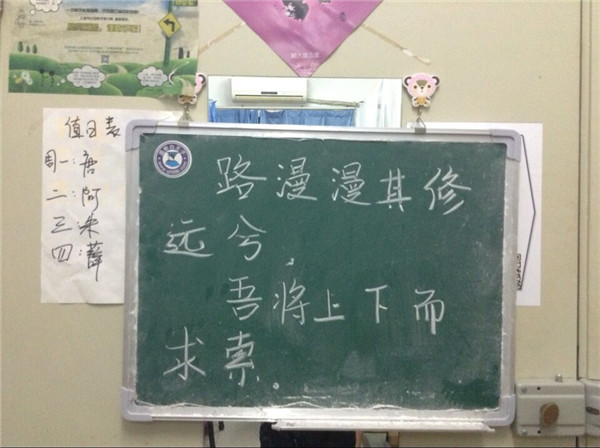 值日表
周一:唐
二:阿
三:朱
四:薛
路漫漫其修
远兮,
吾将上下而
求索。